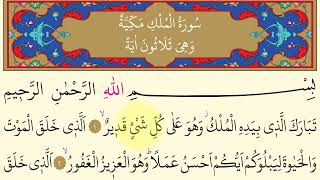 سُورَةُ الْمُلْكِ مَكِّيَّةٌ
وَهِيَ ثَلَاثُونَ اٰيَةً
بِسْمِ اللّٰهِ الرَّحْمٰنِ الرَّحٖيمِ
تَبَارَكَ الَّذٖى بِيَدِهِ الْمُلْكُ وَهُوَ عَلٰى كُلِّ شَىْءٍ قَدٖيرٌۙ ﴿١﴾ اَلَّذٖى خَلَقَ الْمَوْتَ
وَالْحَيٰوةَ لِيَبْلُوَكُمْ اَيُّكُمْ اَحْسَنُ عَمَلاًۜ وَهُوَ الْعَزٖيزُ الْغَفُورُۙ ﴿٢﴾ اَلَّذٖى خَلَقَ